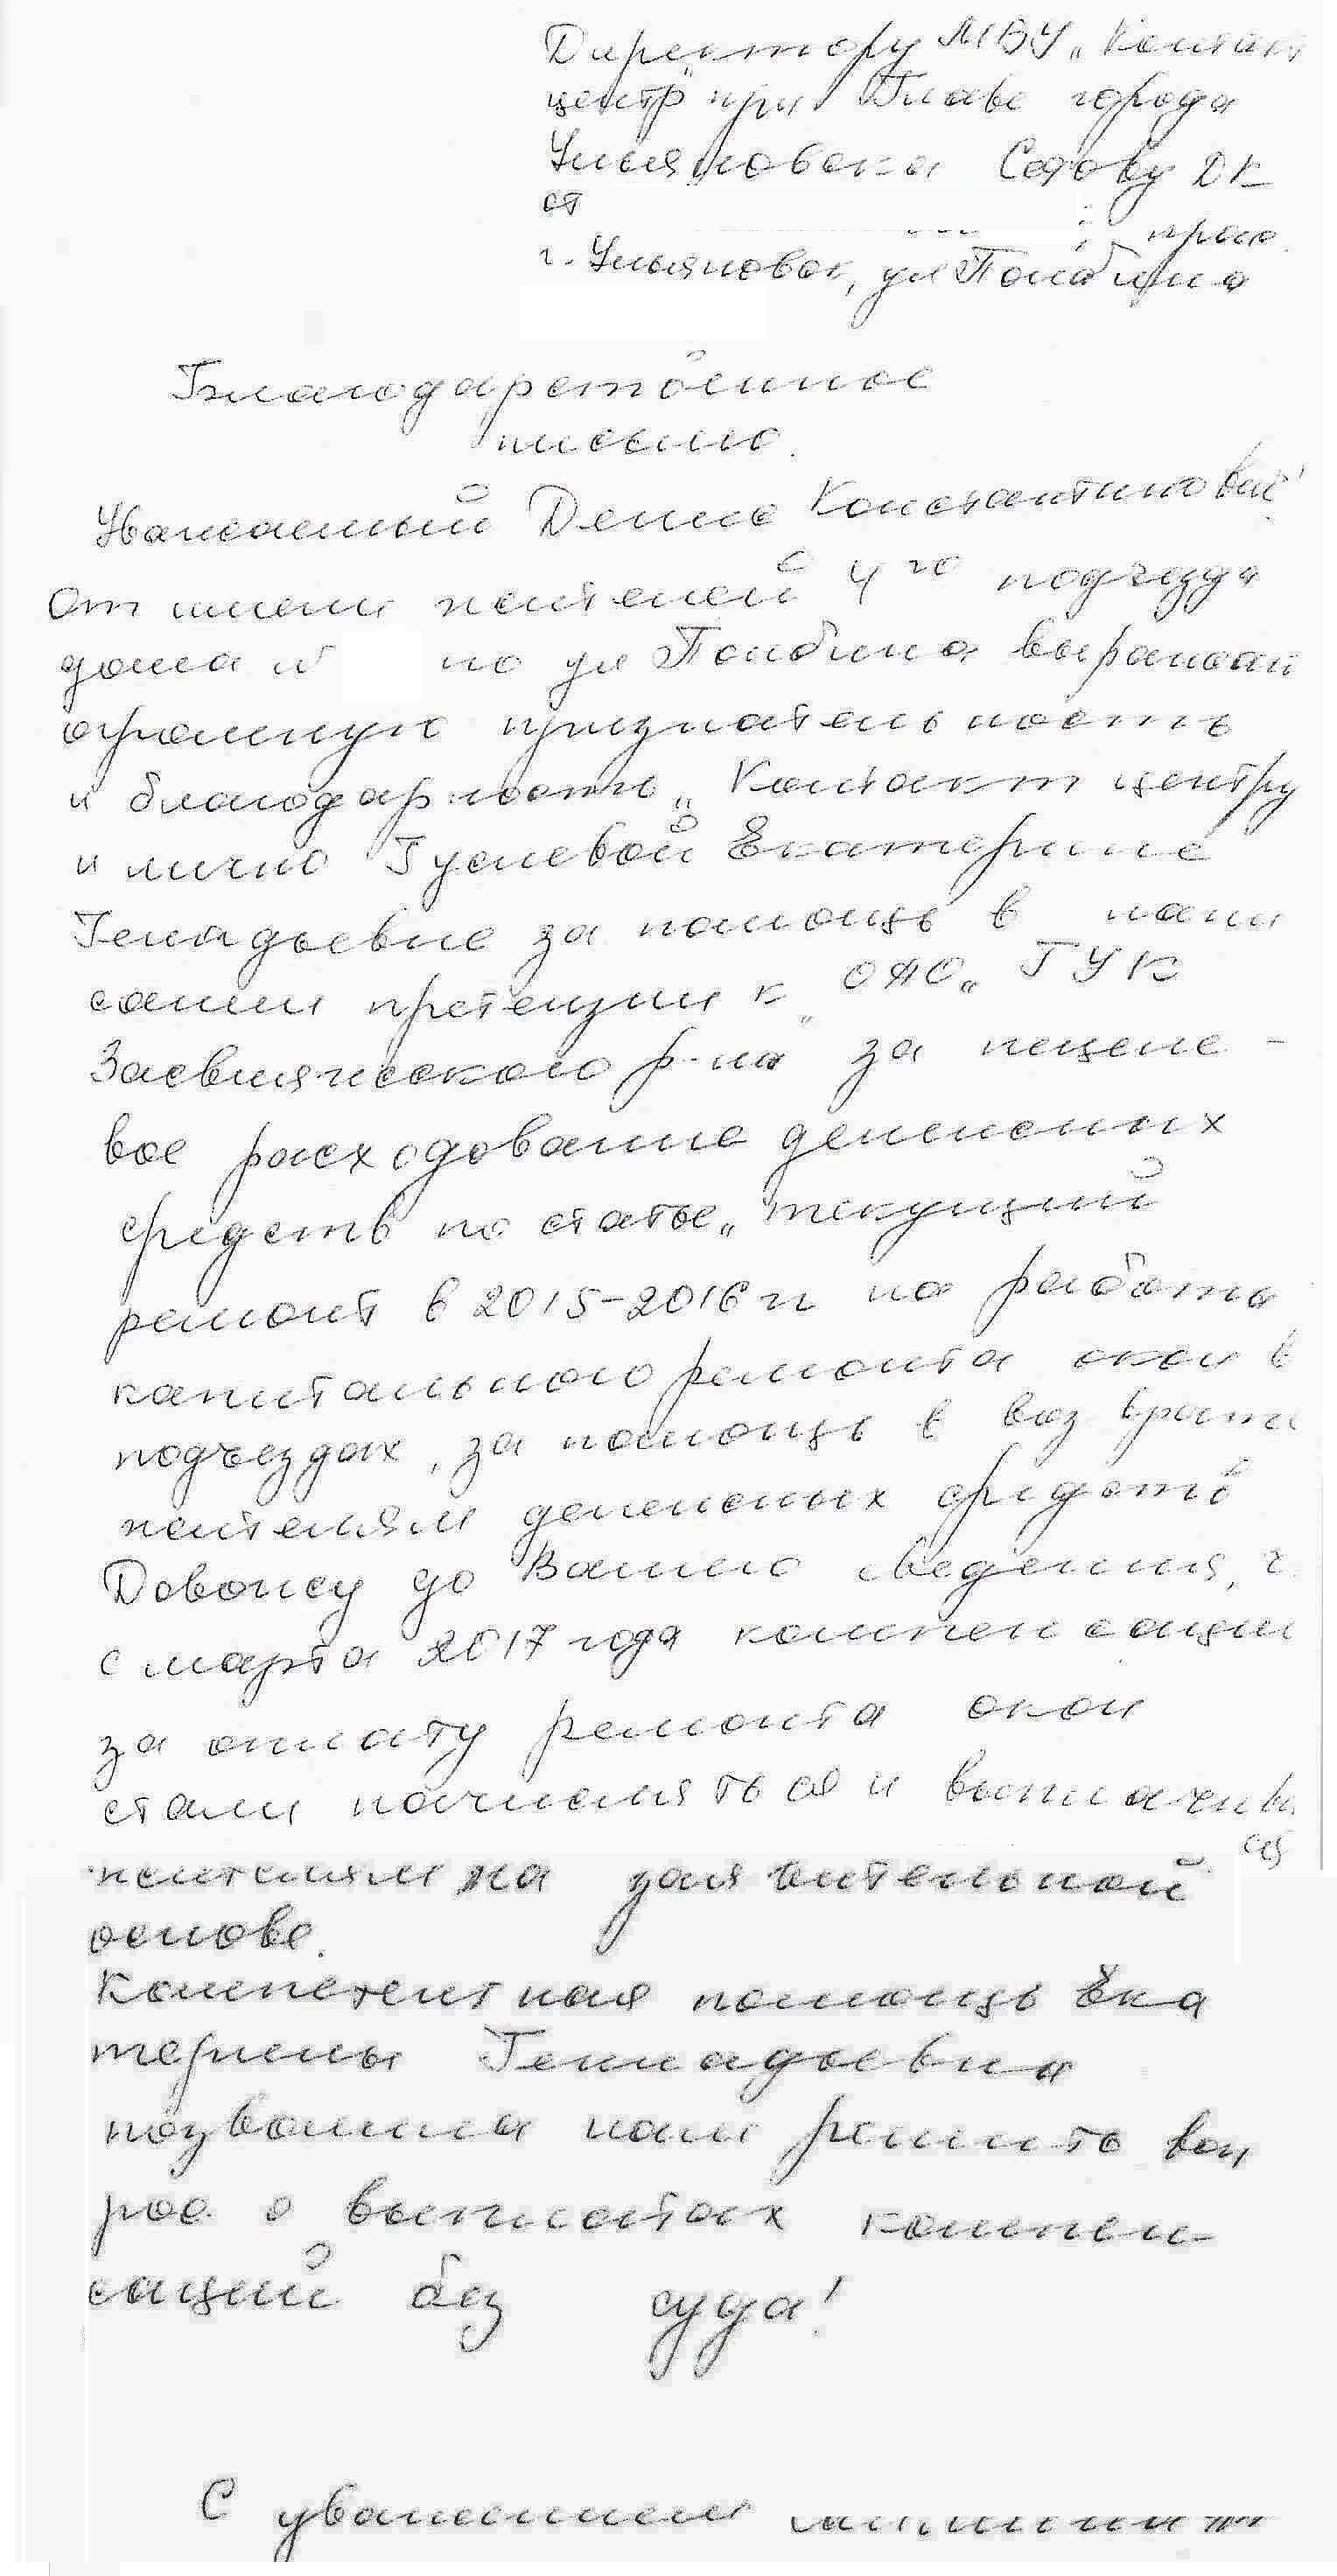 Директору МБУ „Контакт
центр" при Главе города
Ульяновска Седову ДК
от
; прож.
г. Ульяновск, ул Полбина
Благодарственное
письмо.
Уважаемый Денис Константинович!
От имени жителей 4го подъезда
дома № по ул Полбина выражаю
огромную признательность
и благодарность „Контакт центру
и лично Гуслевой Екатерине
Генадьевне за помощь в напи
сании претензии к ОАО „ГУК
Засвияжского р-на" за нецеле-
вое расходование денежных
средств по статье „текущий
ремонт в 2015-2016 гг на работы
капитального ремонта окон в
подъездах, за помощь в воз врате
жителям денежных средств
Довожу до Вашего сведения, ч
с марта 2017 года компенсации
за оплату ремонта окон
стали начисляться и выплачивать
ся
жителям на заявительной
основе.
Компетентная помощь Ека
терины Геннадьевны
позволила нам решить воп
рос о выплатах компен-
саций без суда!
С уважением